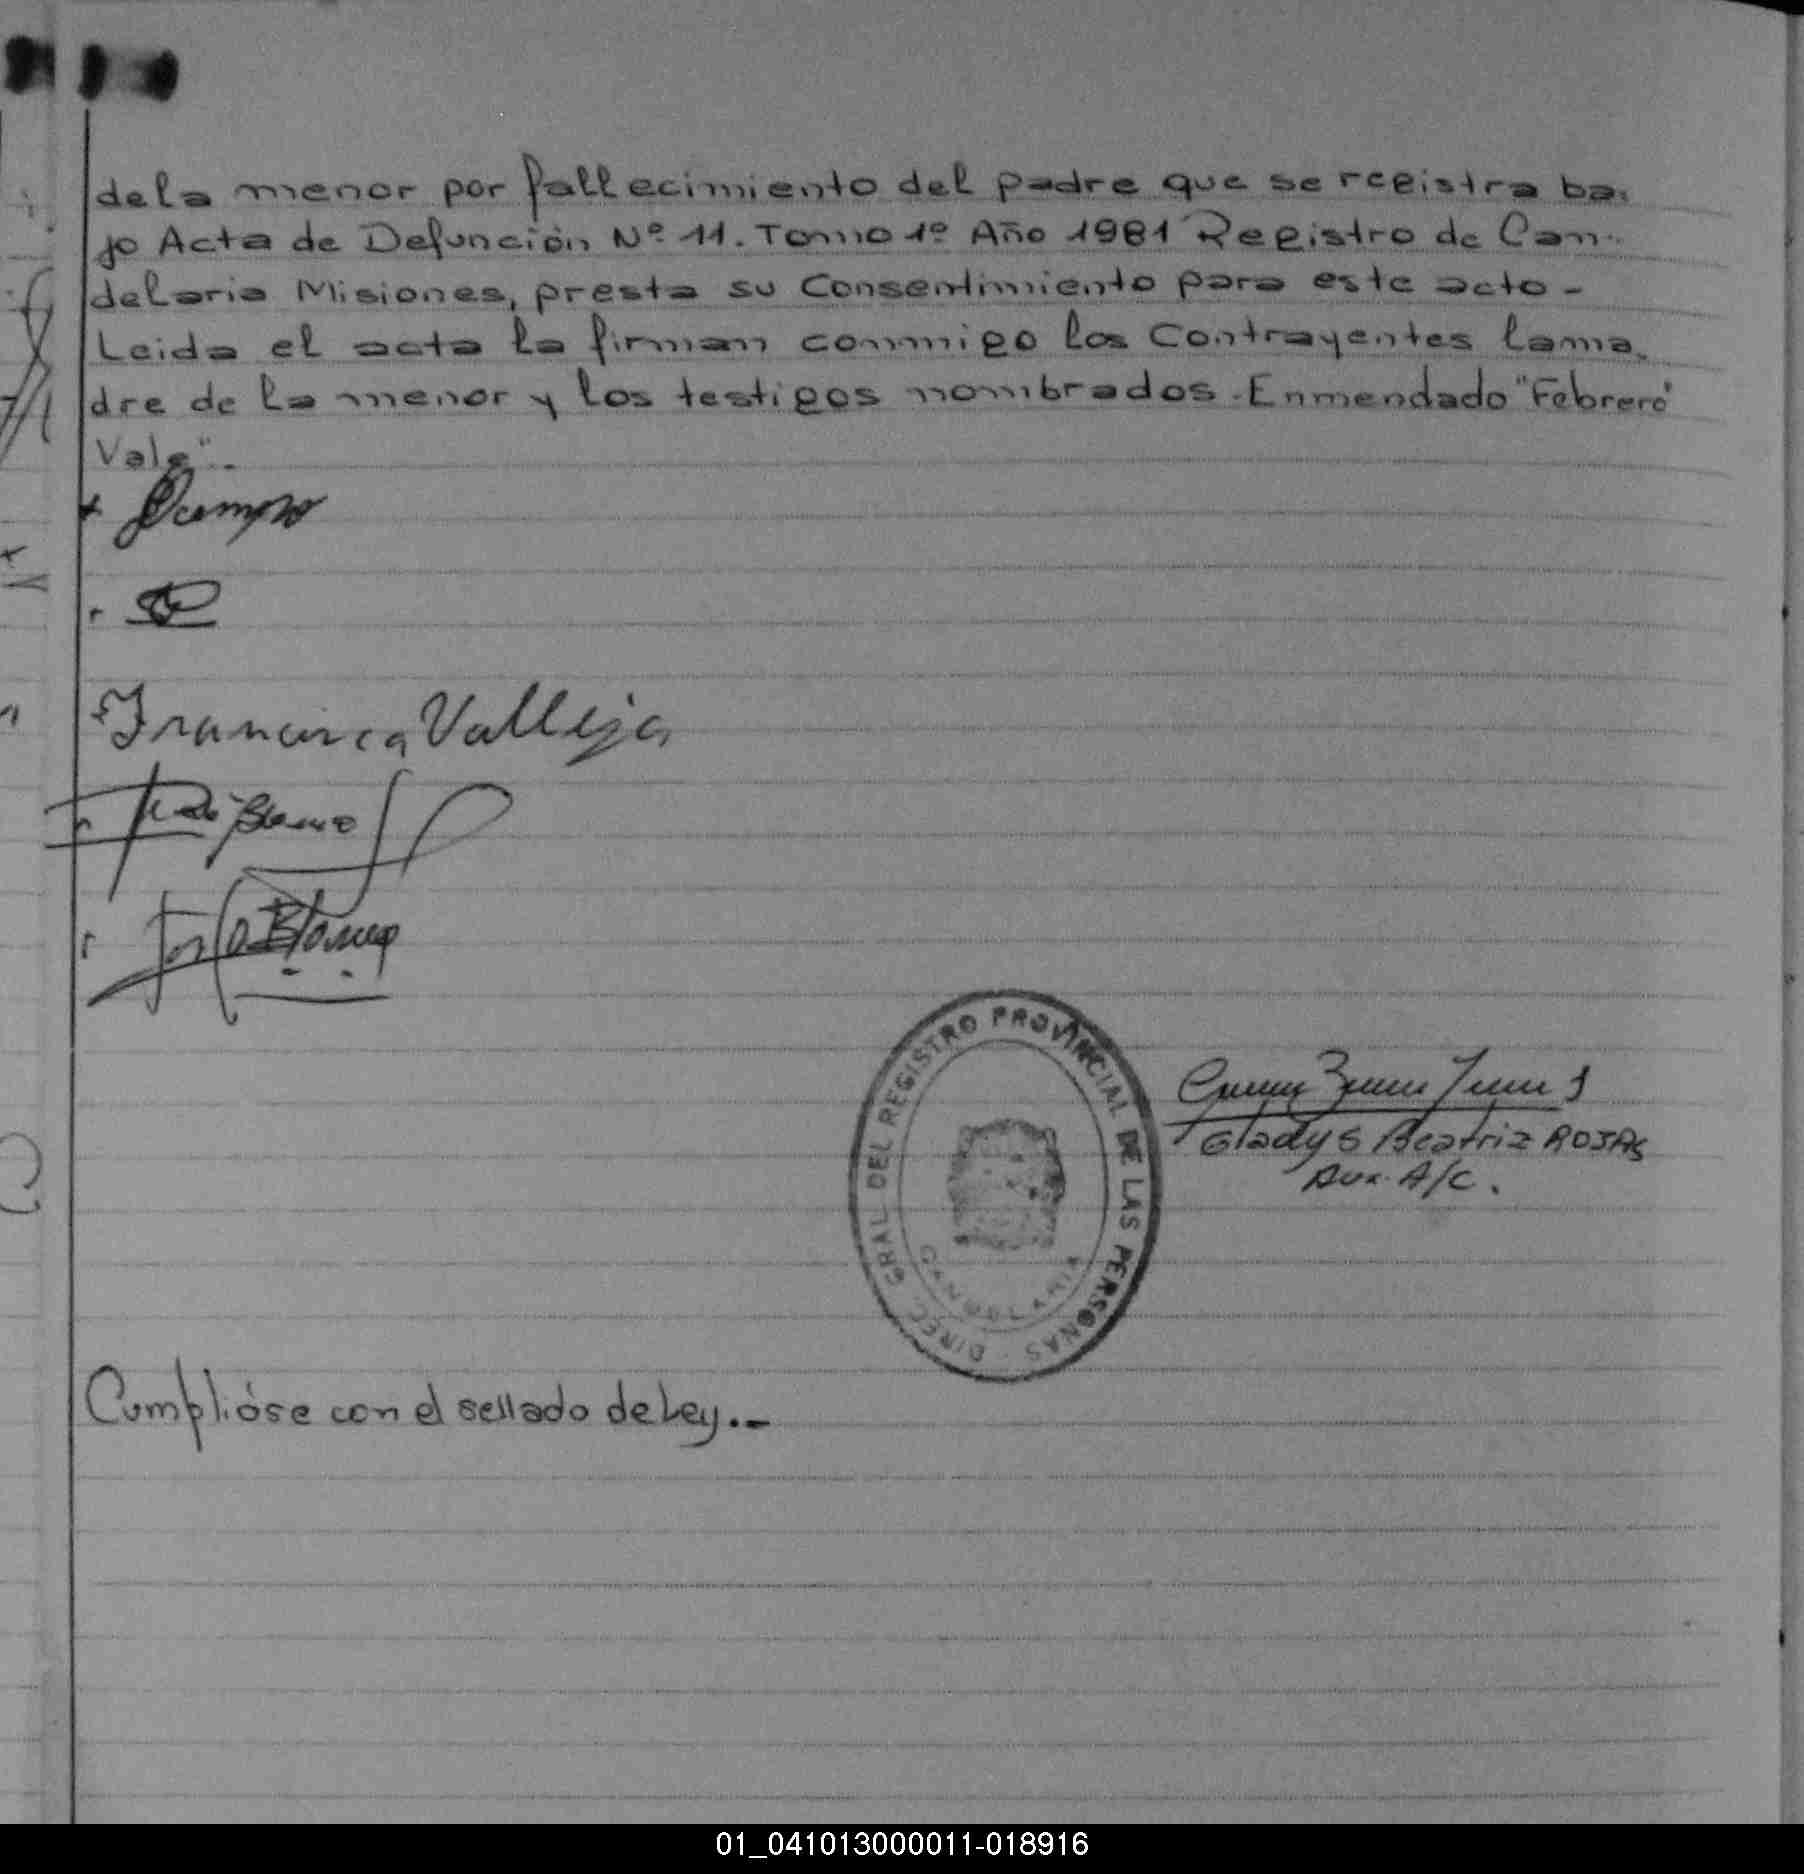 dela menor por fallecimiento del padre que se registra ba-
jo Acta de Defunción Nº 11. Tomo 1º Año 1981 Registro de Can-
delaria Misiones, presta su Consentimiento para este acto-
Leida el acta la firman conmigo los Contrayentes lama-
dre de la menor y los testigos nombrados. Enmendado "Febrero"
Vale".-
Ocampo
Francisca Valleja
Blanco
DIREC. GRAL DEL REGISTRO PROVINCIAL DE LAS PERSONAS
CANDELARIA
Gladys Beatriz ROJAS
Aux. A/C.
Cumplióse con el sellado de Ley.-
01_041013000011-018916